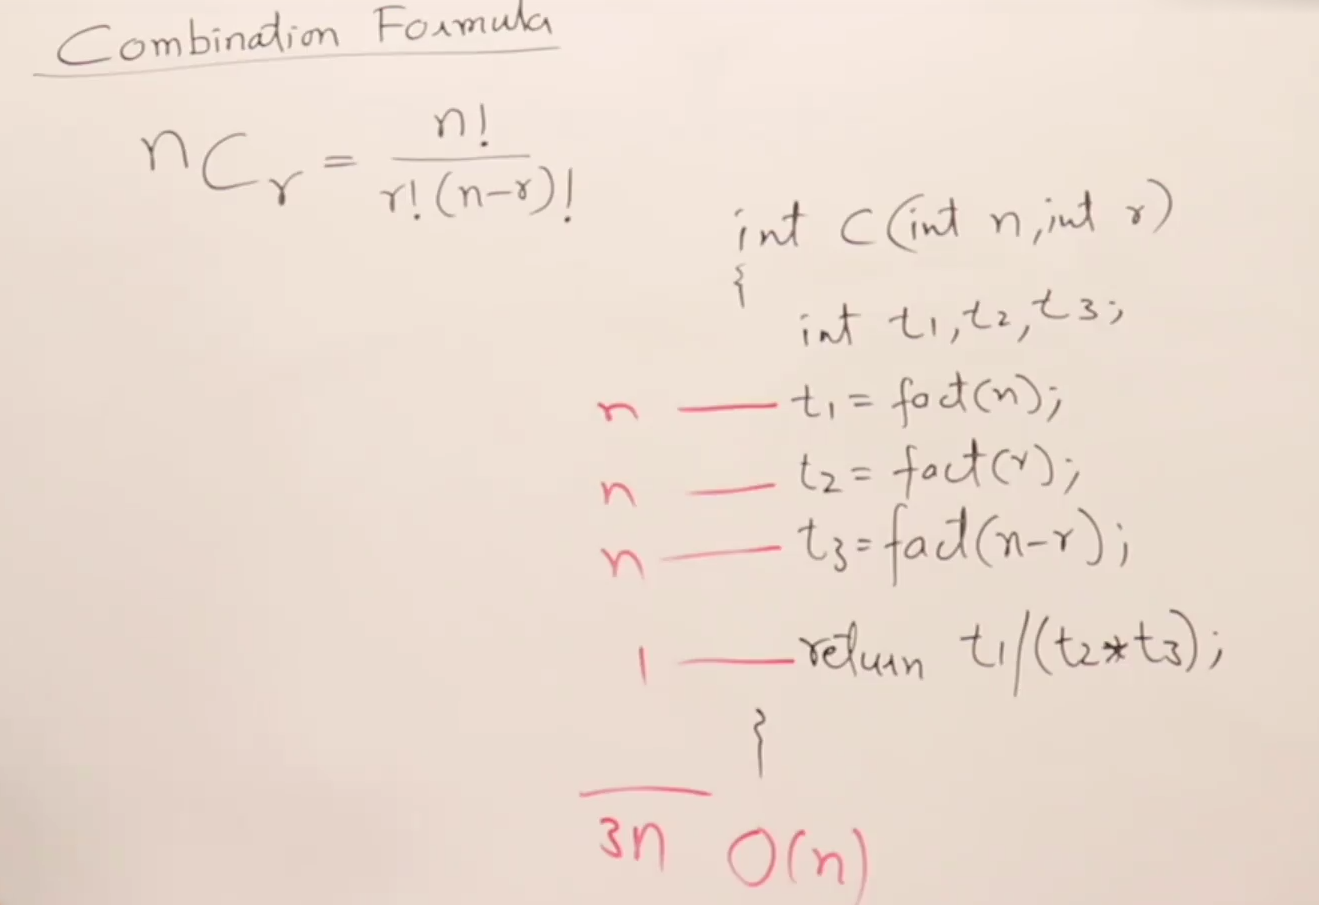 Combination Formula
nCr = n! / r!(n-r)!
int C(int n, int r)
{
int t1, t2, t3;
n — t1 = fact(n);
n — t2 = fact(r);
n — t3 = fact(n-r);
1 — return t1/(t2*t3);
}
3n O(n)